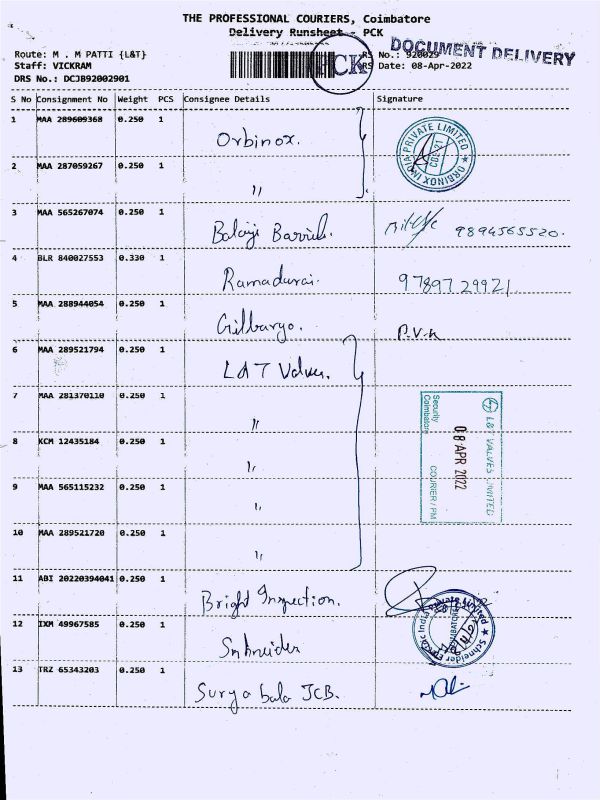 THE PROFESSIONAL COURIERS, Coimbatore
Delivery Runsheet - PCK
DOCUMENT DELIVERY
Route: M . M PATTI {L&T}
Staff: VICKRAM
DRS No.: DCJB92002901
CK
DRS No.: 920029
DRS Date: 08-Apr-2022
S No Consignment No Weight PCS Consignee Details Signature
1 MAA 289609368 0.250 1 Orbinox.
ORBINOX INDIA PRIVATE LIMITED ★ CBE-21
2 MAA 287059267 0.250 1 "
3 MAA 565267074 0.250 1 Balaji 9894565520.
4 BLR 840027553 0.330 1 Ramadurai. 97897 29921
5 MAA 288944054 0.250 1 Gilbargo. P.V.K
6 MAA 289521794 0.250 1 L&T Valves.
7 MAA 281370110 0.250 1 "
8 KCM 12435184 0.250 1 "
9 MAA 565115232 0.250 1 "
10 MAA 289521720 0.250 1 "
L&T VALVES LIMITED
08 APR 2022
COURIER / PM
Security
Coimbatore
11 ABI 20220394041 0.250 1 Bright Inspection.
12 IXM 49967585 0.250 1 Snhneider
Schneider Electric India Private Limited ★
13 TRZ 65343203 0.250 1 Surya bala JCB.